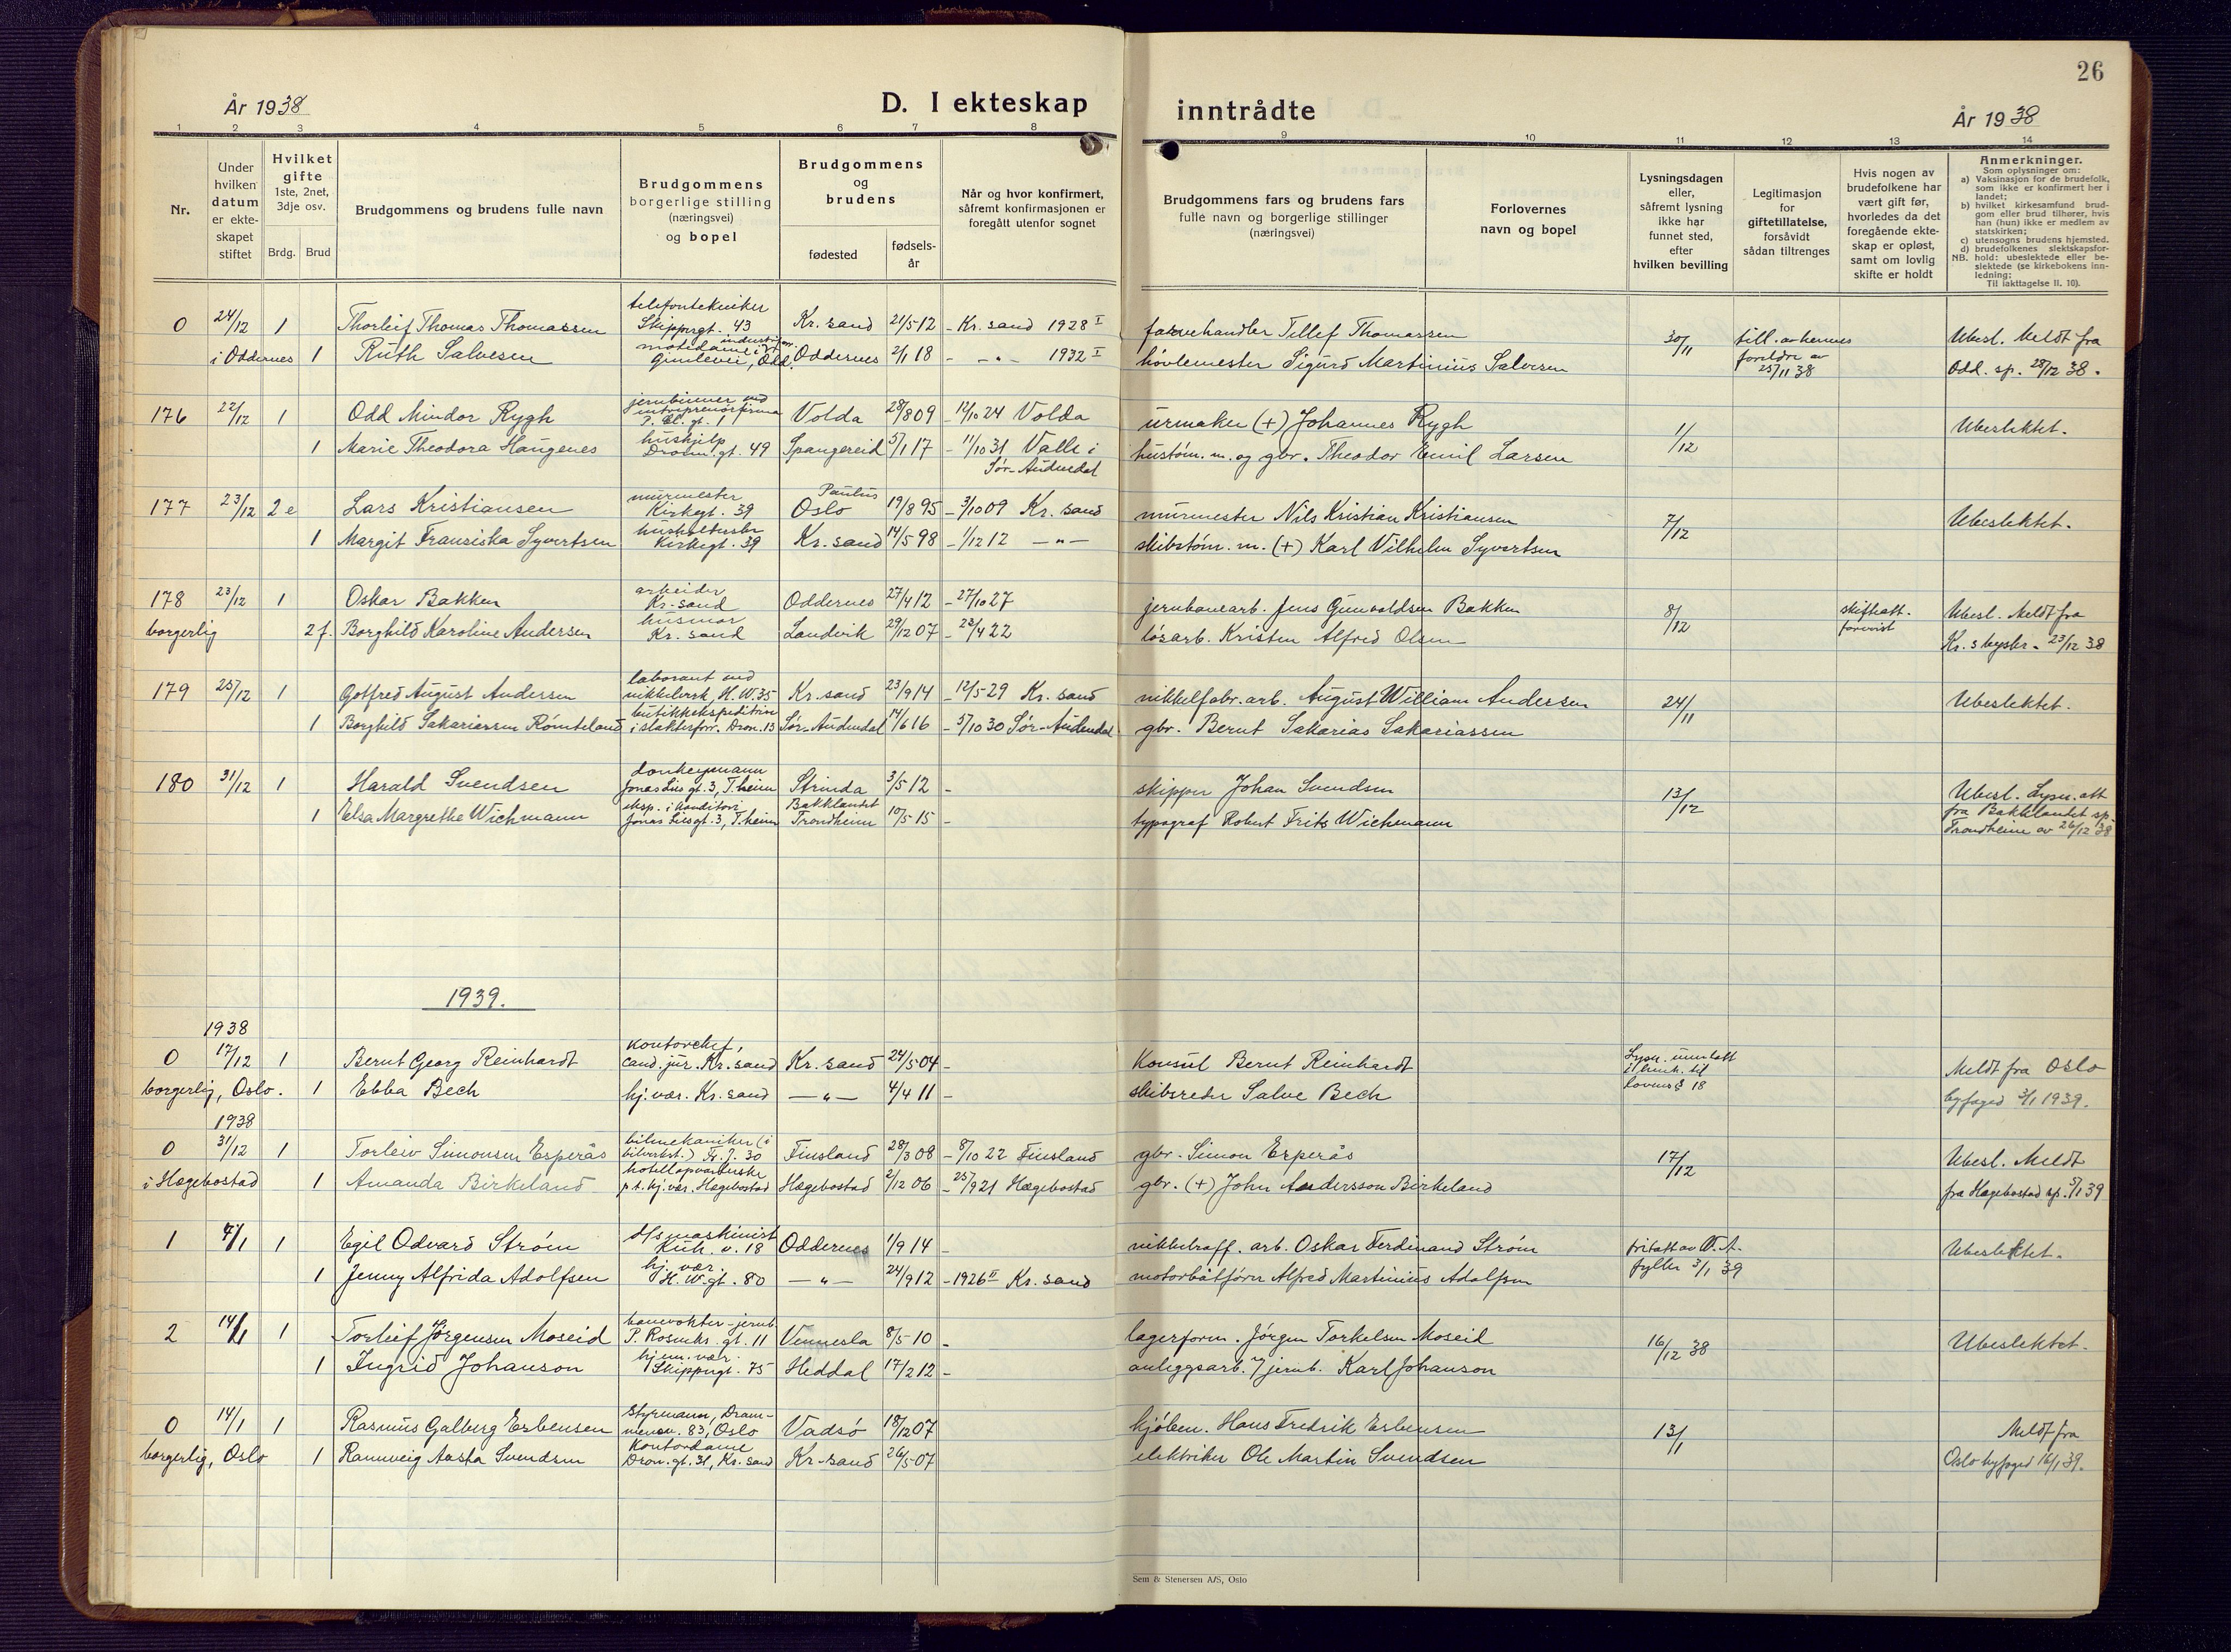 26
År 1938
D. I ekteskap
inntrådte
År 1938
1 2 3 4 5 6 7 8 9 10 11 12 13 14
Nr.
Under hvilken datum er ekteskapet stiftet
Hvilket gifte 1ste, 2net, 3dje osv.
Brdg. Brud
Brudgommens og brudens fulle navn
Brudgommens borgerlige stilling (næringsvei) og bopel
Brudgommens og brudens
fødested
fødsels-år
Når og hvor konfirmert, såfremt konfirmasjonen er foregått utenfor sognet
Brudgommens fars og brudens fars fulle navn og borgerlige stillinger (næringsvei)
Forlovernes navn og bopel
Lysningsdagen eller, såfremt lysning ikke har funnet sted, efter hvilken bevilling
Legitimasjon for giftetillatelse, forsåvidt sådan tiltrenges
Hvis nogen av brudefolkene har vært gift før, hvorledes da det foregående ekteskap er opløst, samt om lovlig skifte er holdt
Anmerkninger.
Som oplysninger om:
a) Vaksinasjon for de brudefolk, som ikke er konfirmert her i landet;
b) hvilket kirkesamfund brudgom eller brud tilhører, hvis han (hun) ikke er medlem av statskirken;
c) utensogns brudens hjemsted.
d) brudefolkenes slektskapsforhold: ubeslektede eller beslektede (se kirkebokens innledning;
NB.
Til iakttagelse II. 10).
0 24/12 1 Thorleif Thomas Thomassen telefontekniker Skippergt. 43 Kr.sand 21/5 12 - Kr.sand 1928 I farvehandler Tellef Thomassen 30/11 till. av hennes foreldre av 25/11 38 Ubesl. Meldt fra
i Oddernes 1 Ruth Salvesen Gimlevei, Odd. Oddernes 2/1 18 - -"- 1932 I høvlemester Sigurd Martinius Salvesen Odd. sp. 28/12 38.
176 22/12 1 Odd Mindor Rygh jernbinner ved intreprenørfirma Volda 28/8 09 - 12/10 24 Volda urmaker (+) Johannes Rygh 1/12 Ubeslektet.
1 Marie Theodora Haugenes hushjelp Dronn.gt. 49 Spangereid 5/1 17 - 11/10 31 Valle i Sør-Audnedal hustøm. m. og gbr. Theodor Emil Larsen
177 23/12 2 e Lars Kristiansen murmester Kirkegt. 39 Paulus Oslo 19/8 95 - 3/10 09 Kr.sand murmester Nils Kristian Kristiansen 7/12 Ubeslektet.
1 Margit Fransiska Syvertsen husholderske Kirkegt. 39 Kr.sand 14/5 98 - 1/12 12 -"- skibstøm. m. (+) Karl Vilhelm Syvertsen
178 23/12 1 Oskar Bakken arbeider Kr.sand Oddernes 27/4 12 - 27/10 27 jernbanearb. Jens Gunvaldsen Bakken 8/12 skifteatt. forevist Ubesl. Meldt fra
borgerlig 2 f. Borghild Karoline Andersen husmor Kr.sand Landvik 29/12 07 - 23/4 22 løsarb. Kristen Alfred Olsen Kr.s byskr. 23/12 38
179 25/12 1 Gotfred August Andersen laborant ved nikkelverk, H.W. 35 Kr.sand 23/9 14 - 12/5 29 Kr.sand nikkelfabr.arb. August William Andersen 24/11 Ubeslektet.
1 Borghild Sakariassen Rømteland butikkekspeditrise i slakterforr. Dron. 13 Sør-Audnedal 14/6 16 - 5/10 30 Sør-Audnedal gbr. Bernt Sakarias Sakariassen
180 31/12 1 Harald Svendsen donkeymann Jonas Lies gt. 3, T.heim Strinda 3/5 12 - skipper Johan Svendsen 13/12 Ubesl. Lysn. att
1 Elsa Margrethe Wichmann eksp. i konditori Jonas Liesgt. 3, T.heim Bakklandet Trondheim 10/5 15 - typograf Robert Frits Wichmann fra Bakklandet sp. Trondheim av 26/12 38
1939.
1938
0 17/12 1 Bernt Georg Reinhardt kontorchef, cand. jur. Kr.sand Kr.sand 24/5 04 - Konsul Bernt Reinhardt Lysn. unnlatt i henh. til lovens § 18 Meldt fra Oslo
borgerlig, Oslo. 1 Ebba Bech hj.vær. Kr.sand -"- 4/4 11 - skibsreder Salve Bech byfoged 3/1 1939.
1938
0 31/12 1 Torleiv Simonsen Esperås bilmekaniker (i bilverkst.) Fr. J. 30 Finsland 28/3 08 - 8/10 22 Finsland gbr. Simon Esperås 17/12 Ubesl. Meldt
i Hægebostad 1 Amanda Birkeland hotellopvarterske p.t. hj.vær. Hægebostad Hægebostad 2/12 06 - 25/9 21 Hægebostad gbr. (+) John Andersson Birkeland fra Hægebostad sp. 5/1 39
1 7/1 1 Egil Odvard Strøm d/s maskinist Kuh. v. 18 Oddernes 1/9 14 - nikkelraff. arb. Oskar Ferdinand Strøm fritatt av fylker 3/1 39 Ubeslektet.
1 Jenny Alfrida Adolfsen hj.vær. H.W.gt. 80 -"- 24/9 12 - 1926 II Kr.sand motorbåtfører Alfred Martinius Adolfsen
2 14/1 1 Torleif Jørgensen Moseid banevokter-jernb. P. Rosenkr. gt. 11 Vennesla 8/5 10 - lagerform. Jørgen Torkelsen Moseid 16/12 38 Ubeslektet.
1 Ingrid Johanson hjem.vær. Skippergt. 75 Heddal 17/2 12 - anleggsarb. v/ jernb. Karl Johanson
0 14/1 1 Rasmus Galberg Esbensen Styrmann, Drammensv. 83, Oslo Vadsø 18/12 07 kjøbm. Hans Fredrik Esbensen 13/1 Meldt fra
borgerlig, Oslo 1 Rannveig Aasta Svendsen Kontordame Dron. gt. 31, Kr.sand Kr.sand 26/5 07 elektriker Ole Martin Svendsen Oslo byfoged 16/1 39.
Sem & Stenersen A/S, Oslo